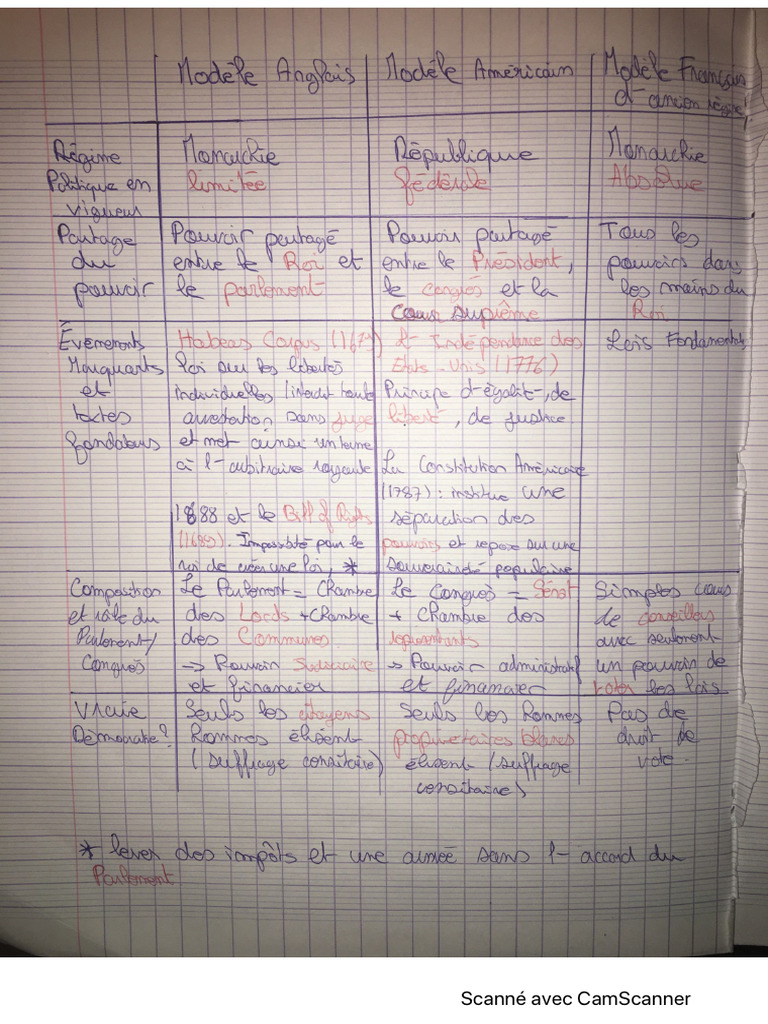 Modèle Anglais
Modèle Américain
Modèle Français
d'ancien régime
Régime
Politique en
vigueur
Monarchie
limitée
République
fédérale
Monarchie
Absolue
Partage
du
pouvoir
Pouvoir partagé
entre le Roi et
le parlement
Pouvoir partagé
entre le Président,
le congrés et la
Cour suprême
Tous les
pouvoirs dans
les mains du
Roi.
Évènements
Marquants
et
textes
fondateurs
Habeas Corpus (1679)
loi sur les libertés
individuelles (interdit toute
arrestation sans juge
et met ainsi un terme
à l'arbitraire royale
1688 et le Bill of Rights
(1689). Impossibilité pour le
roi de créer une loi, *
Indépendance des
États-Unis (1776)
Principe d'égalité, de
liberté, de justice
La Constitution Américaine
(1787) : institue une
séparation des
pouvoirs et repose sur une
souveraineté populaire
Lois Fondamentales
Composition
et rôle du
Parlement/
Congrés
Le Parlement = Chambre
des Lords + Chambre
des Communes.
→ Pouvoir Judiciaire
et financier
Le Congrés = Sénat
+ Chambre des
représentants
→ Pouvoir administratif
et financier
Simples cours
de conseillers
avec seulement
un pouvoir de
voter les lois
Vraie
Démocratie?
Seuls les citoyens
Hommes élisent
(suffrage censitaire)
Seuls les Hommes
propriétaires blancs
élisent (suffrage
censitaire)
Pas de
droit de
vote.
* lever des impôts et une armée sans l'accord du
Parlement
Scanné avec CamScanner